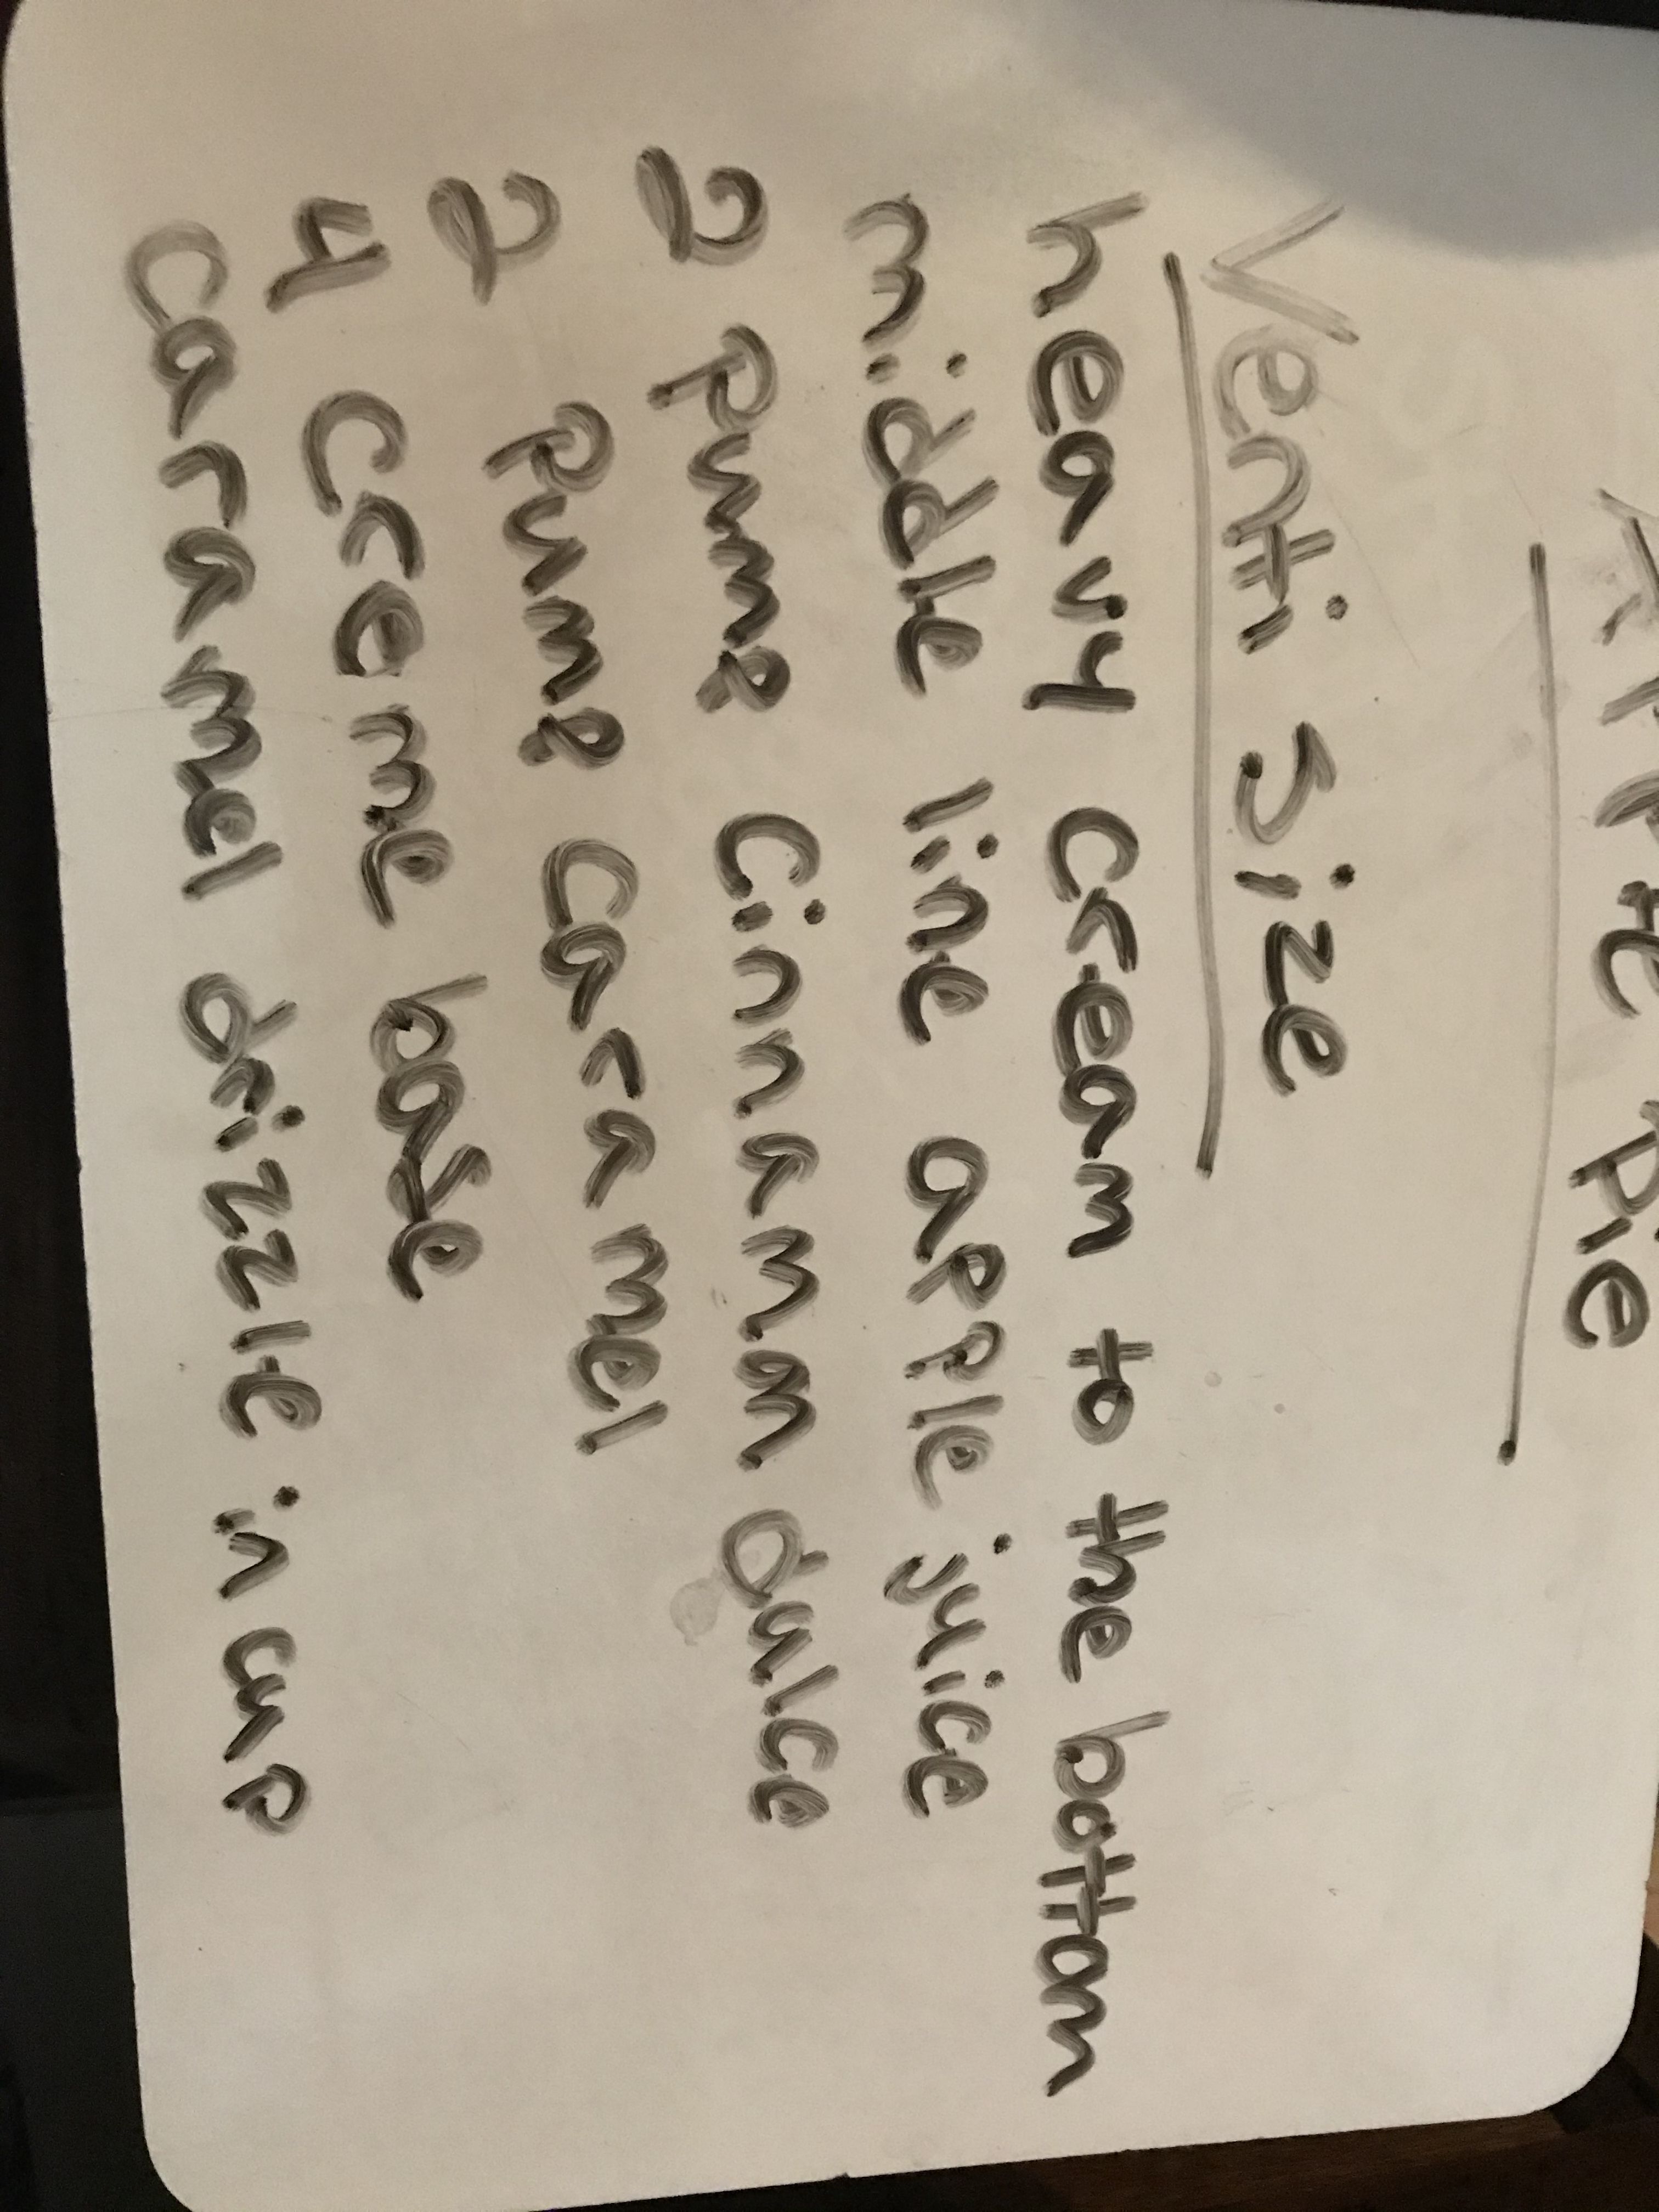 Apple Pie
Venti Size
heavy cream to the bottom
middle line apple juice
2 pump Cinnamon dulce
2 pump caramel
4 Creme base
caramel drizzle in cup